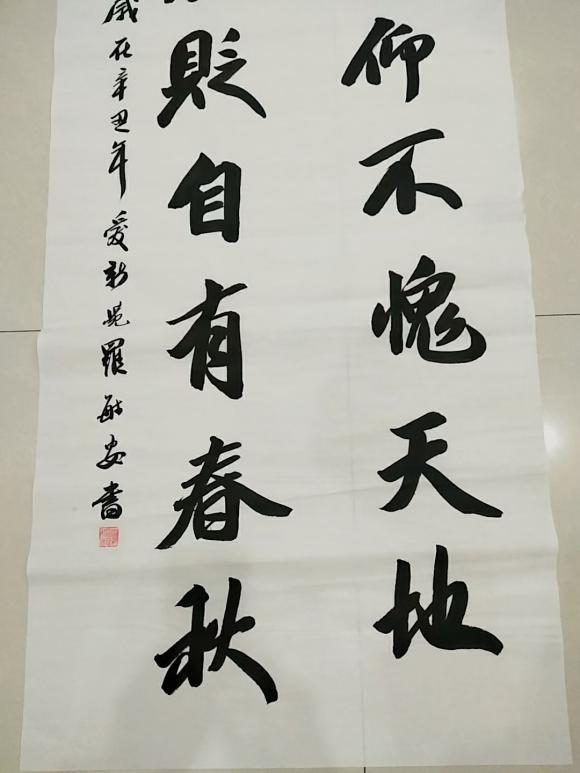 仰不愧天地
貶自有春秋
歲在辛丑年愛新覺羅毓安書